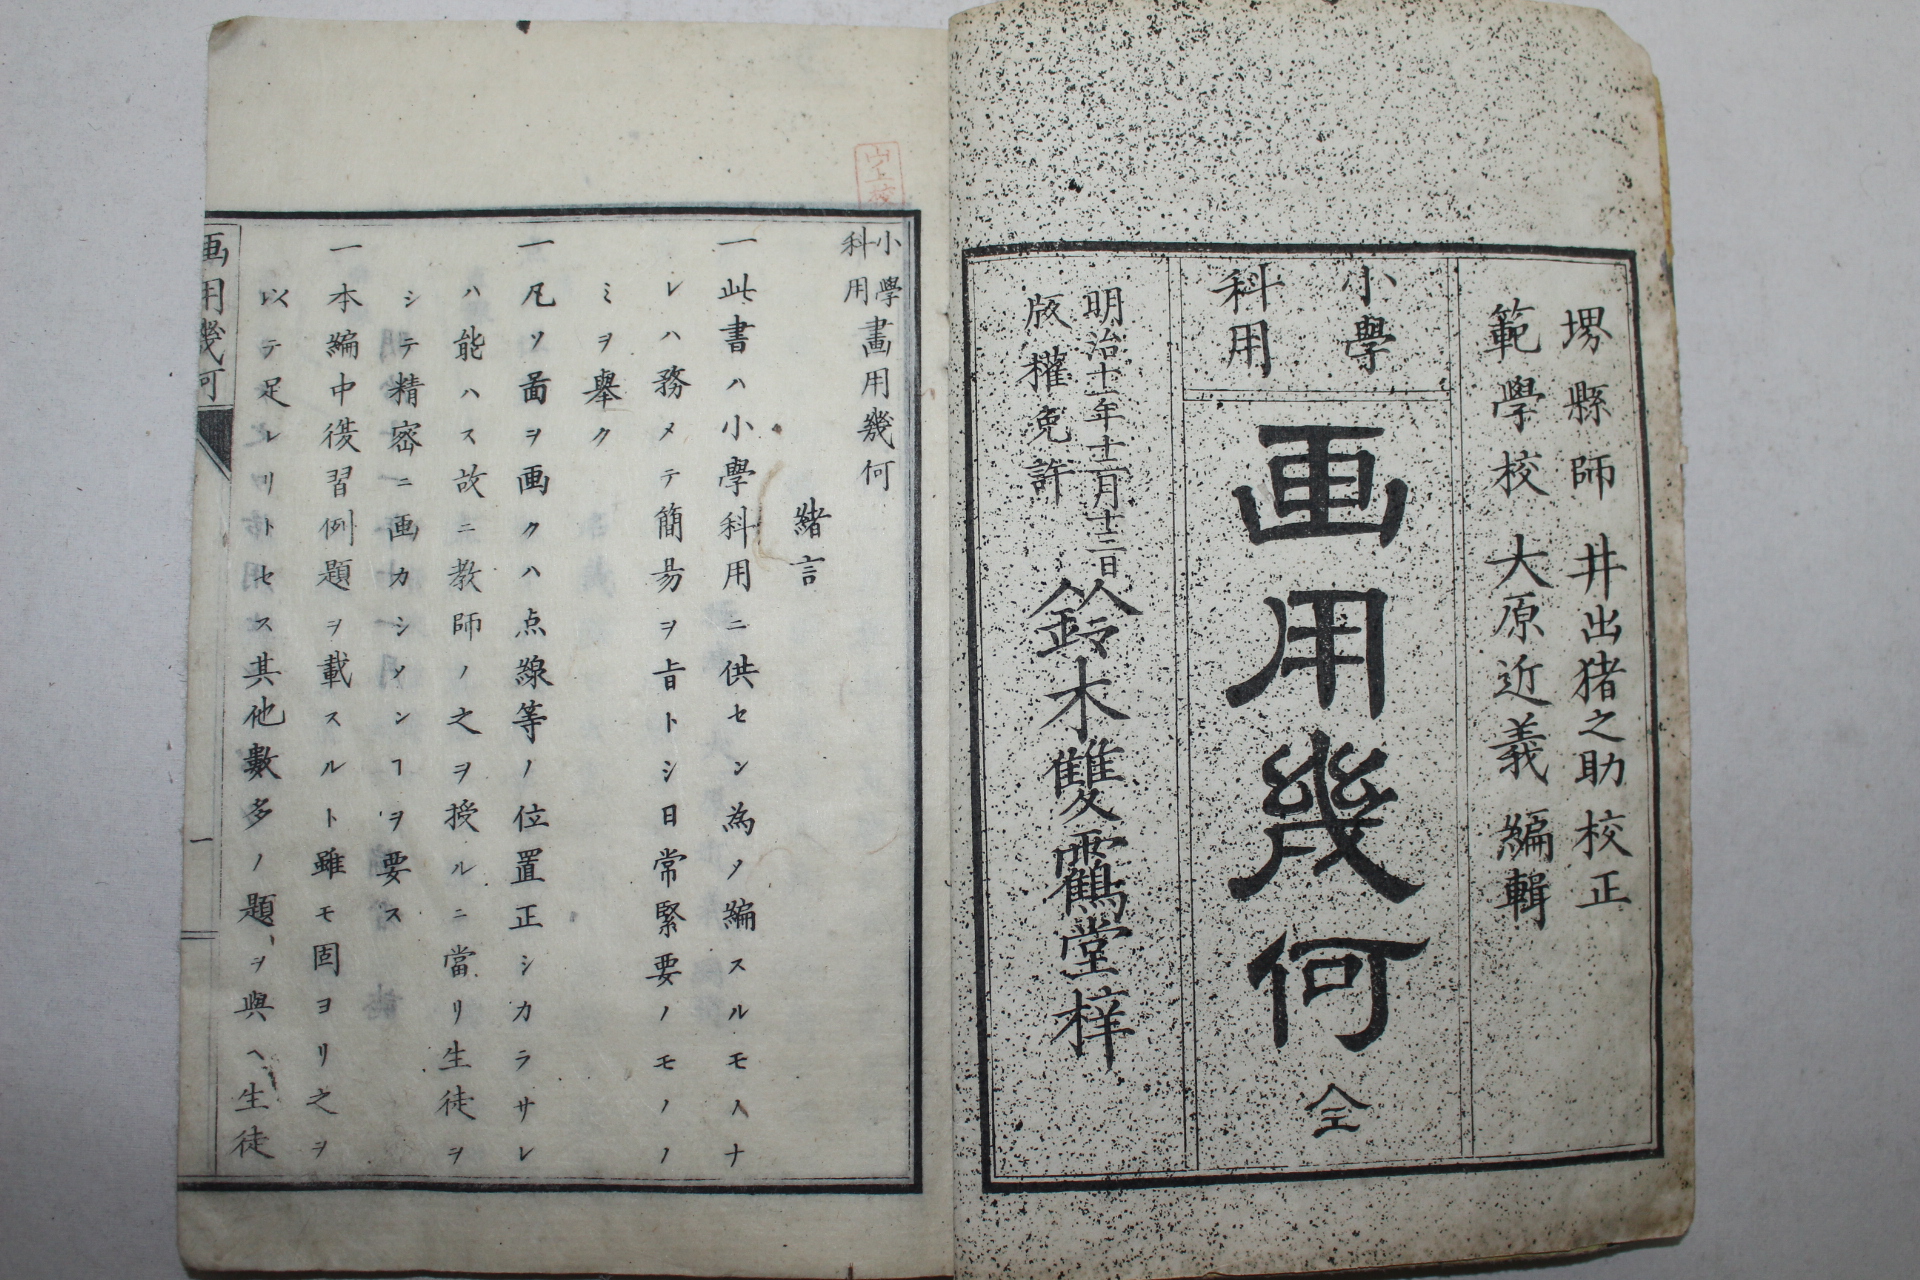 堺縣師 井出猪之助校正
範學校 大原近義編輯
小學
科用
画用幾何 全
明治十一年十二月十三日
版權免許
鈴木雙靏堂梓
小學
科用
畫用幾何
緒言
一此書ハ小學科用ニ供セン為メ編スルモノナ
レハ務メテ簡昜ヲ旨トシ日常緊要ノモノノ
ミヲ擧ク
一凡ソ啚ヲ画クハ点線等ノ位置正シカラサレ
ハ能ハス故ニ教師ノ之ヲ授ルニ當リ生徒ヲ
シテ精密ニ画カシメンヿヲ要ス
一本編中復習例題ヲ載スルト雖モ固ヨリ之ヲ
以テ足レリトセス其他數多ノ題ヲ與ヘ生徒
画用幾何
一